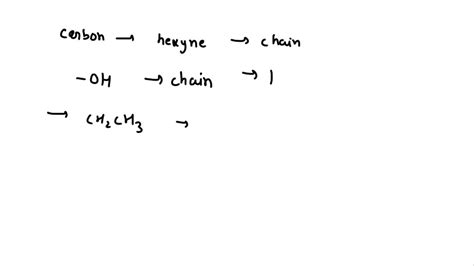 carbon → hexyne → chain
-OH → chain → 1
→ CH₂CH₃ →